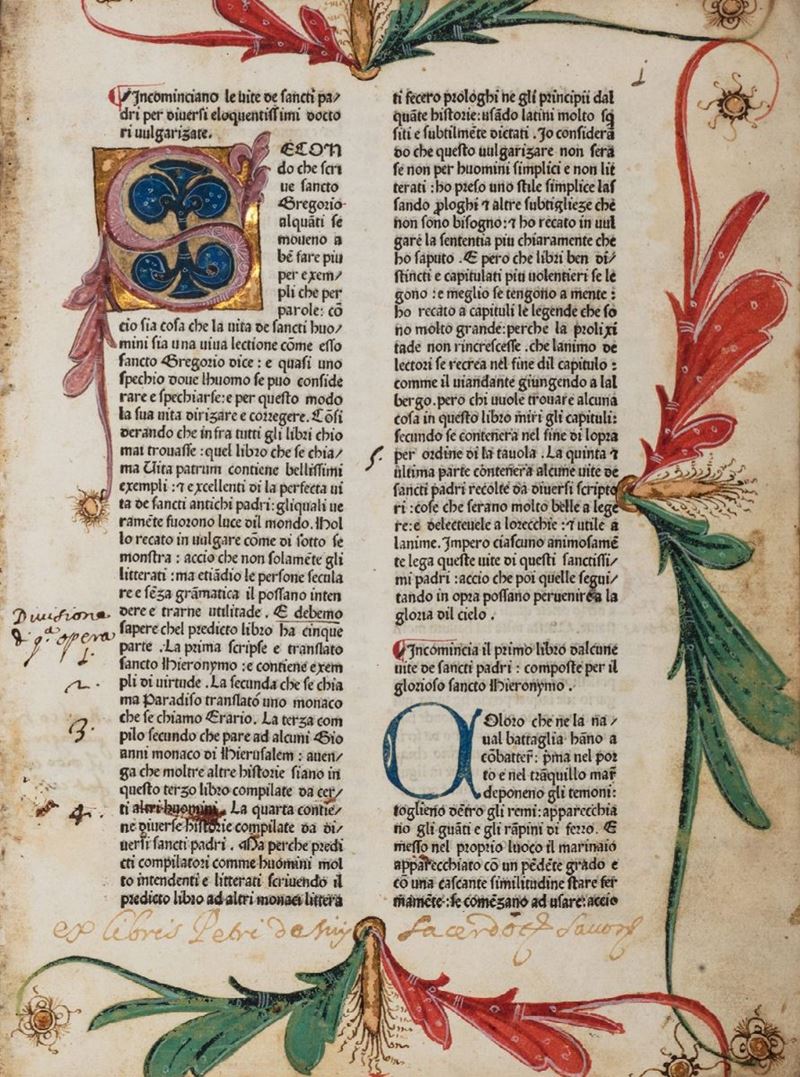 Incominciano le uite de sancti pa/
dri per diuersi eloquentissimi docto
ri uulgarizate.
SECON
do che scri
ue sancto
Gregorio
alquāti se
moueno a
bē fare piu
per exem/
pli che per
parole: cō
cio sia cosa che la uita de sancti huo/
mini sia una uiua lectione cōme esso
sancto Gregorio dice : e quasi uno
spechio doue lhuomo se puo conside
rare e spechiarse: e per questo modo
la sua uita dirizare e corregere. Cōsi
derando che infra tutti gli libri chio
mai trouasse : quel libro che se chia/
ma Uita patrum contiene bellissimi
exempli : ⁊ excellenti di la perfecta ui
ta de sancti antichi padri: gliquali ue
ramēte fuorono luce dil mondo. Mol
lo recato in uulgare cōme di sotto se
monstra : accio che non solamēte gli
litterati : ma etiādio le persone secula
re e sēza grāmatica il possano inten
dere e trarne utilitade. E debemo
sapere chel predicto libro ha cinque
parte . La prima scripse e translato
sancto Hieronymo : e contiene exem
pli di uirtude . La secunda che se chia
ma Paradiso translató uno monaco
che se chiamo Erario. La terza com
pilo secundo che pare ad alcuni Gio
anni monaco di Hierusalem : auen/
ga che moltre altre historie siano in
questo terzo libro compilate da cer/
ti altri huomini. La quarta contie/
ne diuerse historie compilate da di/
uersi sancti padri . Ma perche predi
cti compilatori comme huomini mol
to intendenti e litterati scriuendo il
predicto libro ad altri monaci littera
Diuisione
1.
2.
3.
4.
1
ti fecero prologhi ne gli principii dal
quāte historie: usādo latini molto sq
siti e subtilmēte dictati . Jo considerā
do che questo uulgarizare non sera
se non per huomini simplici e non lit
terati : ho preso uno stile simplice las
sando ꝓloghi ⁊ altre subtiglieze che
non sono bisogno: ⁊ ho recato in uul
gare la sententia piu chiaramente che
ho saputo . E pero che libri ben di/
stincti e capitulati piu uolentieri se le
gono : e meglio se tengono a mente :
ho recato a capituli le legende che so
no molto grande: perche la prolixi
tade non rincrescesse . che lanimo de
lectori se recrea nel fine dil capitulo :
comme il uiandante giungendo a lal
bergo. pero chi uuole trouare alcuna
cosa in questo libro miri gli capituli:
secundo se contenera nel fine di lopra
per ordine di la tauola . La quinta ⁊
ultima parte contenera alcune uite de
sancti padri recolte da diuersi scripto
ri : cose che serano molto belle a lege
re: e delecteuele a lorecchie : ⁊ utile a
lanime. Impero ciascuno animosamē
te lega queste uite di questi sanctissi/
mi padri : accio che poi quelle segui/
tando in opra possano peruenire a la
gloria dil cielo .
5.
Incomincia il primo libro dalcune
uite de sancti padri : composte per il
glorioso sancto Hieronymo .
COloro che ne la na/
ual battaglia hāno a
cōbatter: pma nel por
to e nel trāquillo mar
deponeno gli temoni:
toglieno dētro gli remi: apparecchia
no gli guāti e gli rāpini di ferro. E
messo nel proprio luoco il marinaio
apparecchiato cō un pēdēte grado e
cō una cascante similitudine stare fer
mamēte: se comēzano ad usare: accio
ex libris Petri de sacerdotis